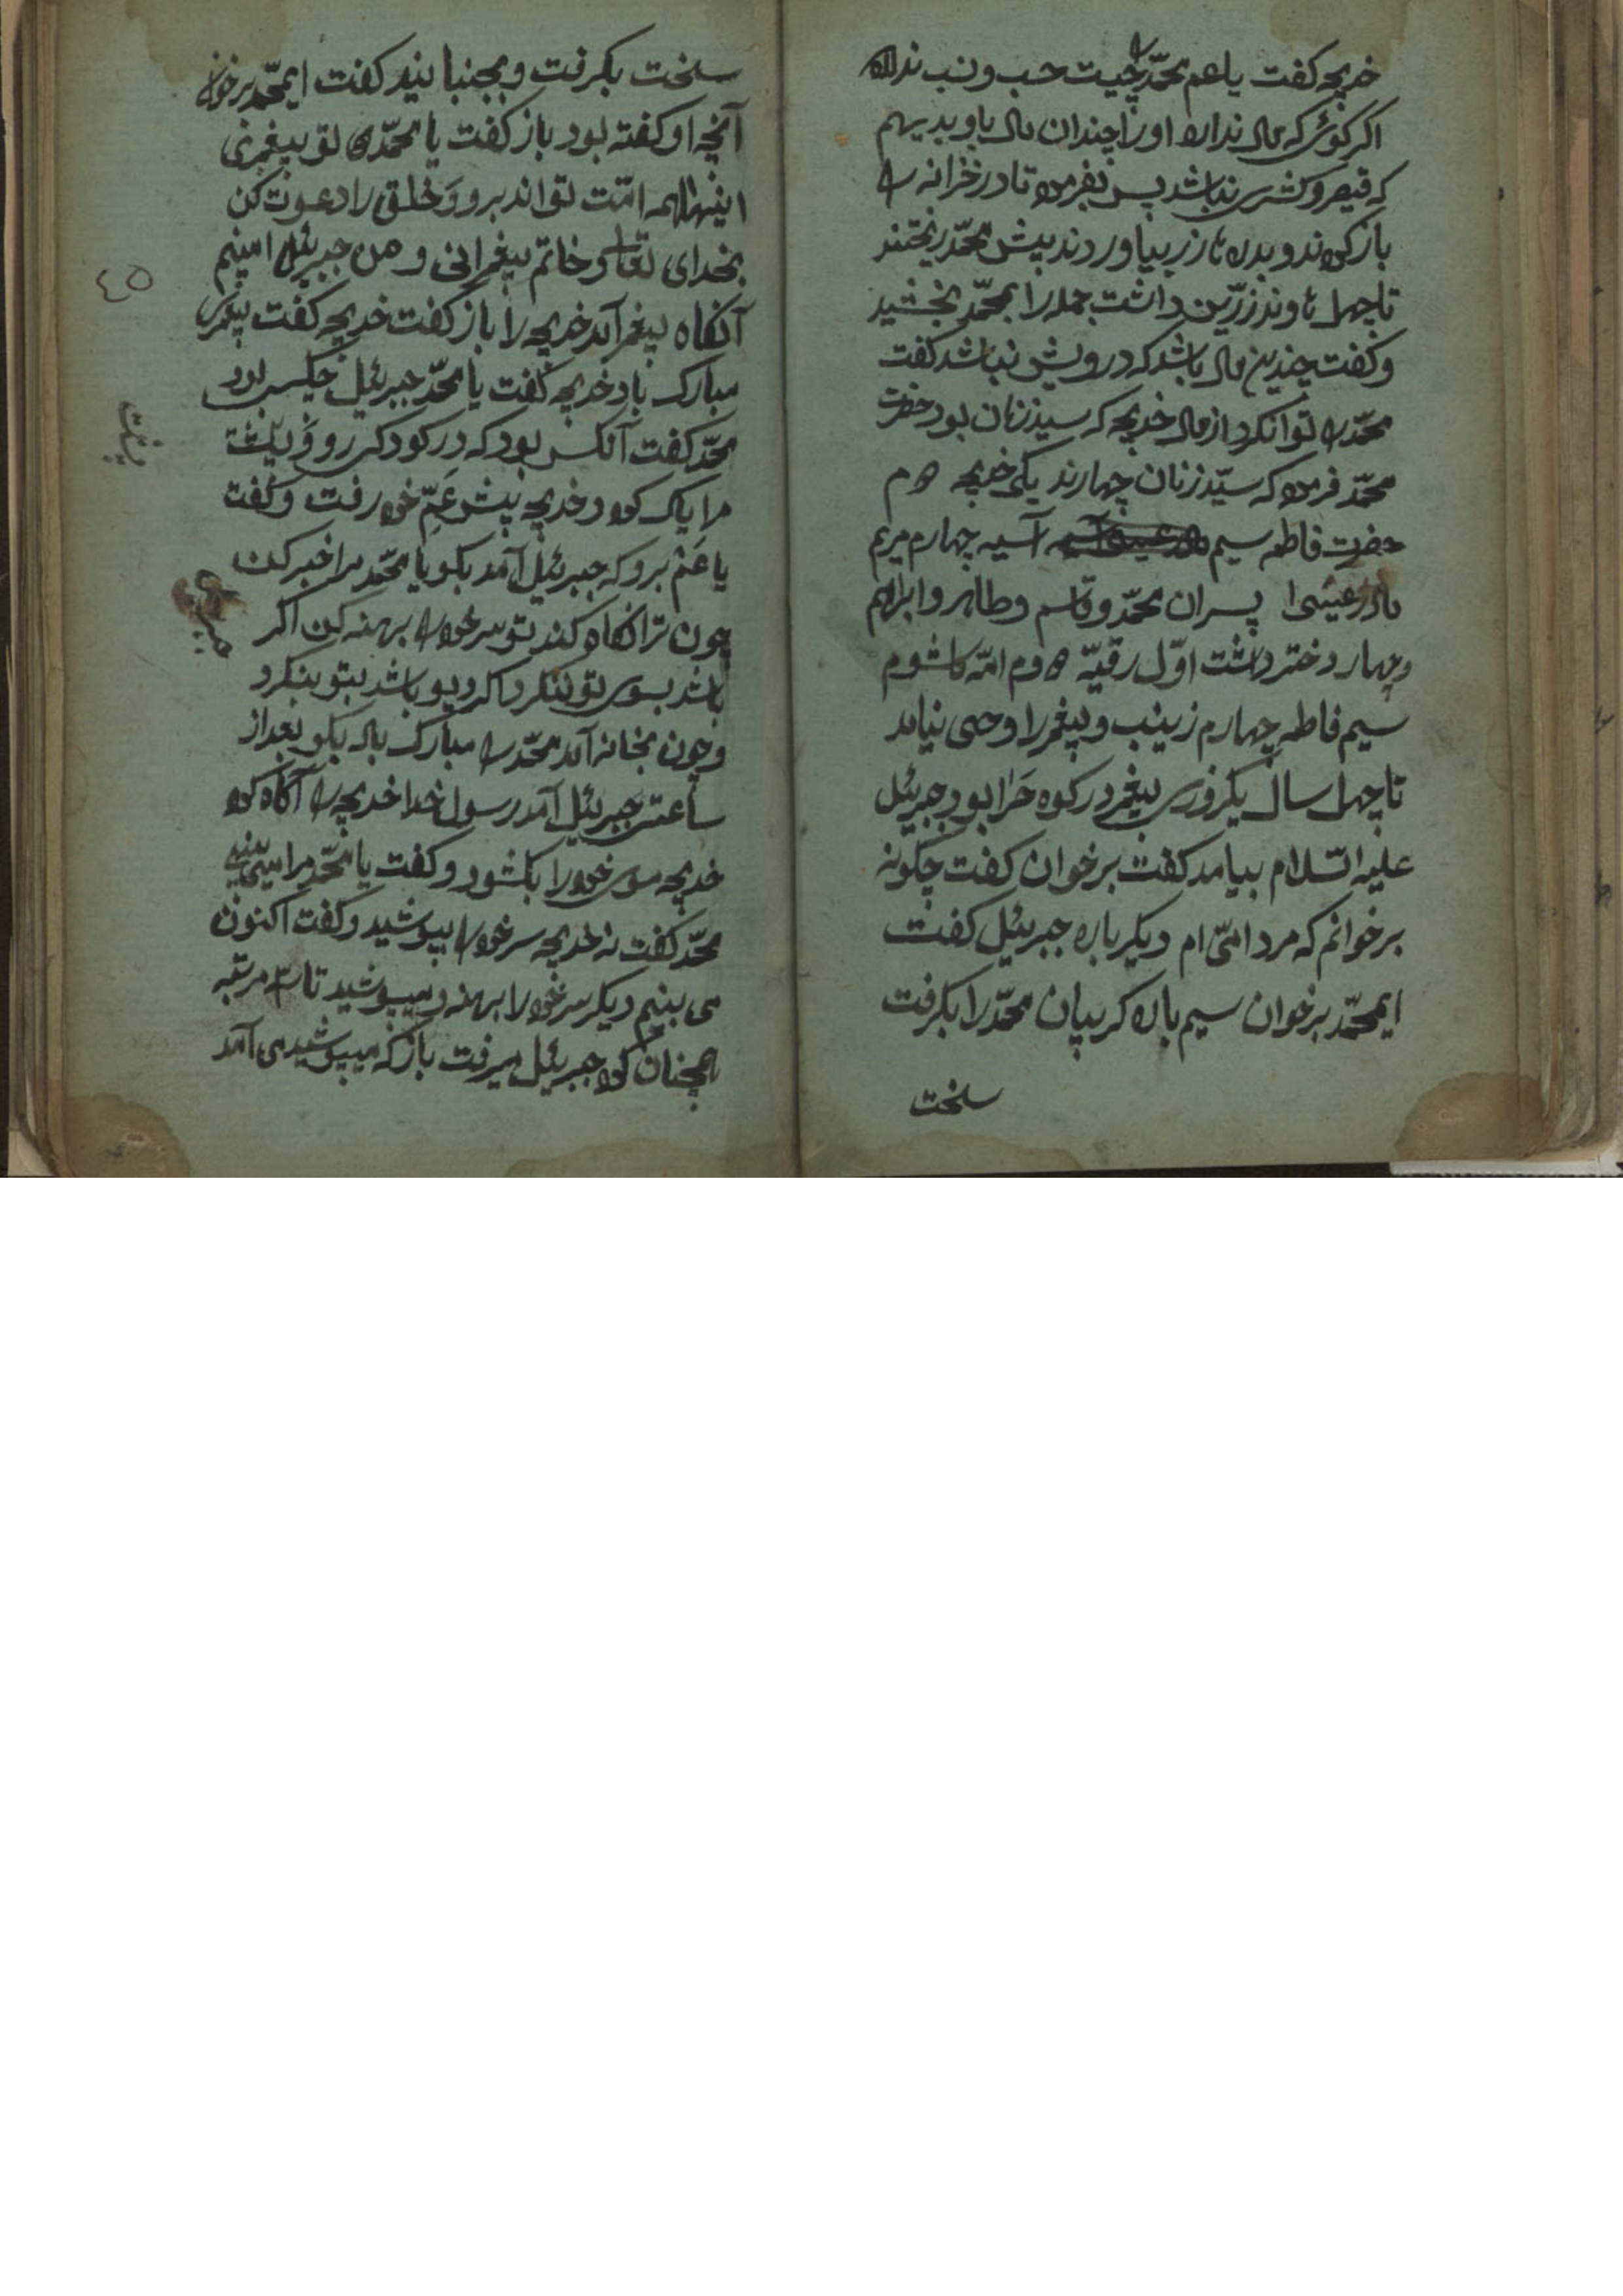 خدیجه گفت یا عم محمّد را چیست حسب و نسب ندارد
اکر کوئی که مال ندارد او را چندان مال باو بدیهم
که قیصر و کسری نباشد پس بفرمود تا در خزانه را
باز کردند و بدره تا زر بیاوردند پیش محمّد ریختند
تا چهل زرّین داشت جمله را بمحمّد بخشید
و کفت چندین مال باشد که درویش نباشد کفت
محمّد را توانکر از مال خدیجه که سیّد زنان بود حضرت
محمّد فرمود که سیّد زنان چهارند یکی خدیجه دوم
حضرت فاطمه سیم آسیه چهارم مریم
مادر عیسی پسران محمّد و قاسم و طاهر و ابراهم
و چهار دختر داشت اوّل رقیّه دوم امّه کلشوم
سیم فاطمه چهارم زینب و پیغمر را وحی نیامد
تا چهل سال یکروزی پیغمر در کوه حرا بود جبریٔل
علیه السّلام بیامد کفت برخوان کفت چکونه
برخوانم که مرد امّی ام دیکر باره جبریٔل کفت
ایمحمّد برخوان سیم باره کریبان محمّد را بکرفت
سخت
سخت بکرفت و بجنبانید کفت ایمحمّد برخوان
آنچه او کفته بود باز کفت یا محمّد تو پیغمری
اینها همه امّت تواند برو و خلق را دعوت کن
بخدای تعالی و خاتم پیغمرانی و من جبریٔل امینم
٤٥
آنکاه پیغمر آمد خدیجه را باز کفت خدیجه کفت پیغمری
مبارک باد خدیجه کفت یا محمّد جبریٔل چکس بود
محمّد کفت آنکس بود که در کودکی رو و پشت
مرا پاک کرد و خدیجه پیش عمّ خود رفت و کفت
یا عم برو که جبریٔل آمد بکو یا محمّد مرا خبر کن
چون ترا آکاه کند تو سر خود را برهنه کن اکر
باشد بسوی تو ننکرد اکر دیو باشد بتو بنکرد
و چون بخانه آمد محمّد را مبارک باد بکو بعد از
ساعتی جبریٔل آمد رسول خدا خدیجه را آکاه کرد
خدیجه موی خود را بکشود و کفت یا محمّد مرا میبینی
محمّد کفت نه خدیجه سر خود را بپوشید و کفت اکنون
می بینم دیکر سر خود را برهنه و میپوشید تا سه مرتبه
همچنان کرد جبریٔل میرفت باز که میپوشید می آمد